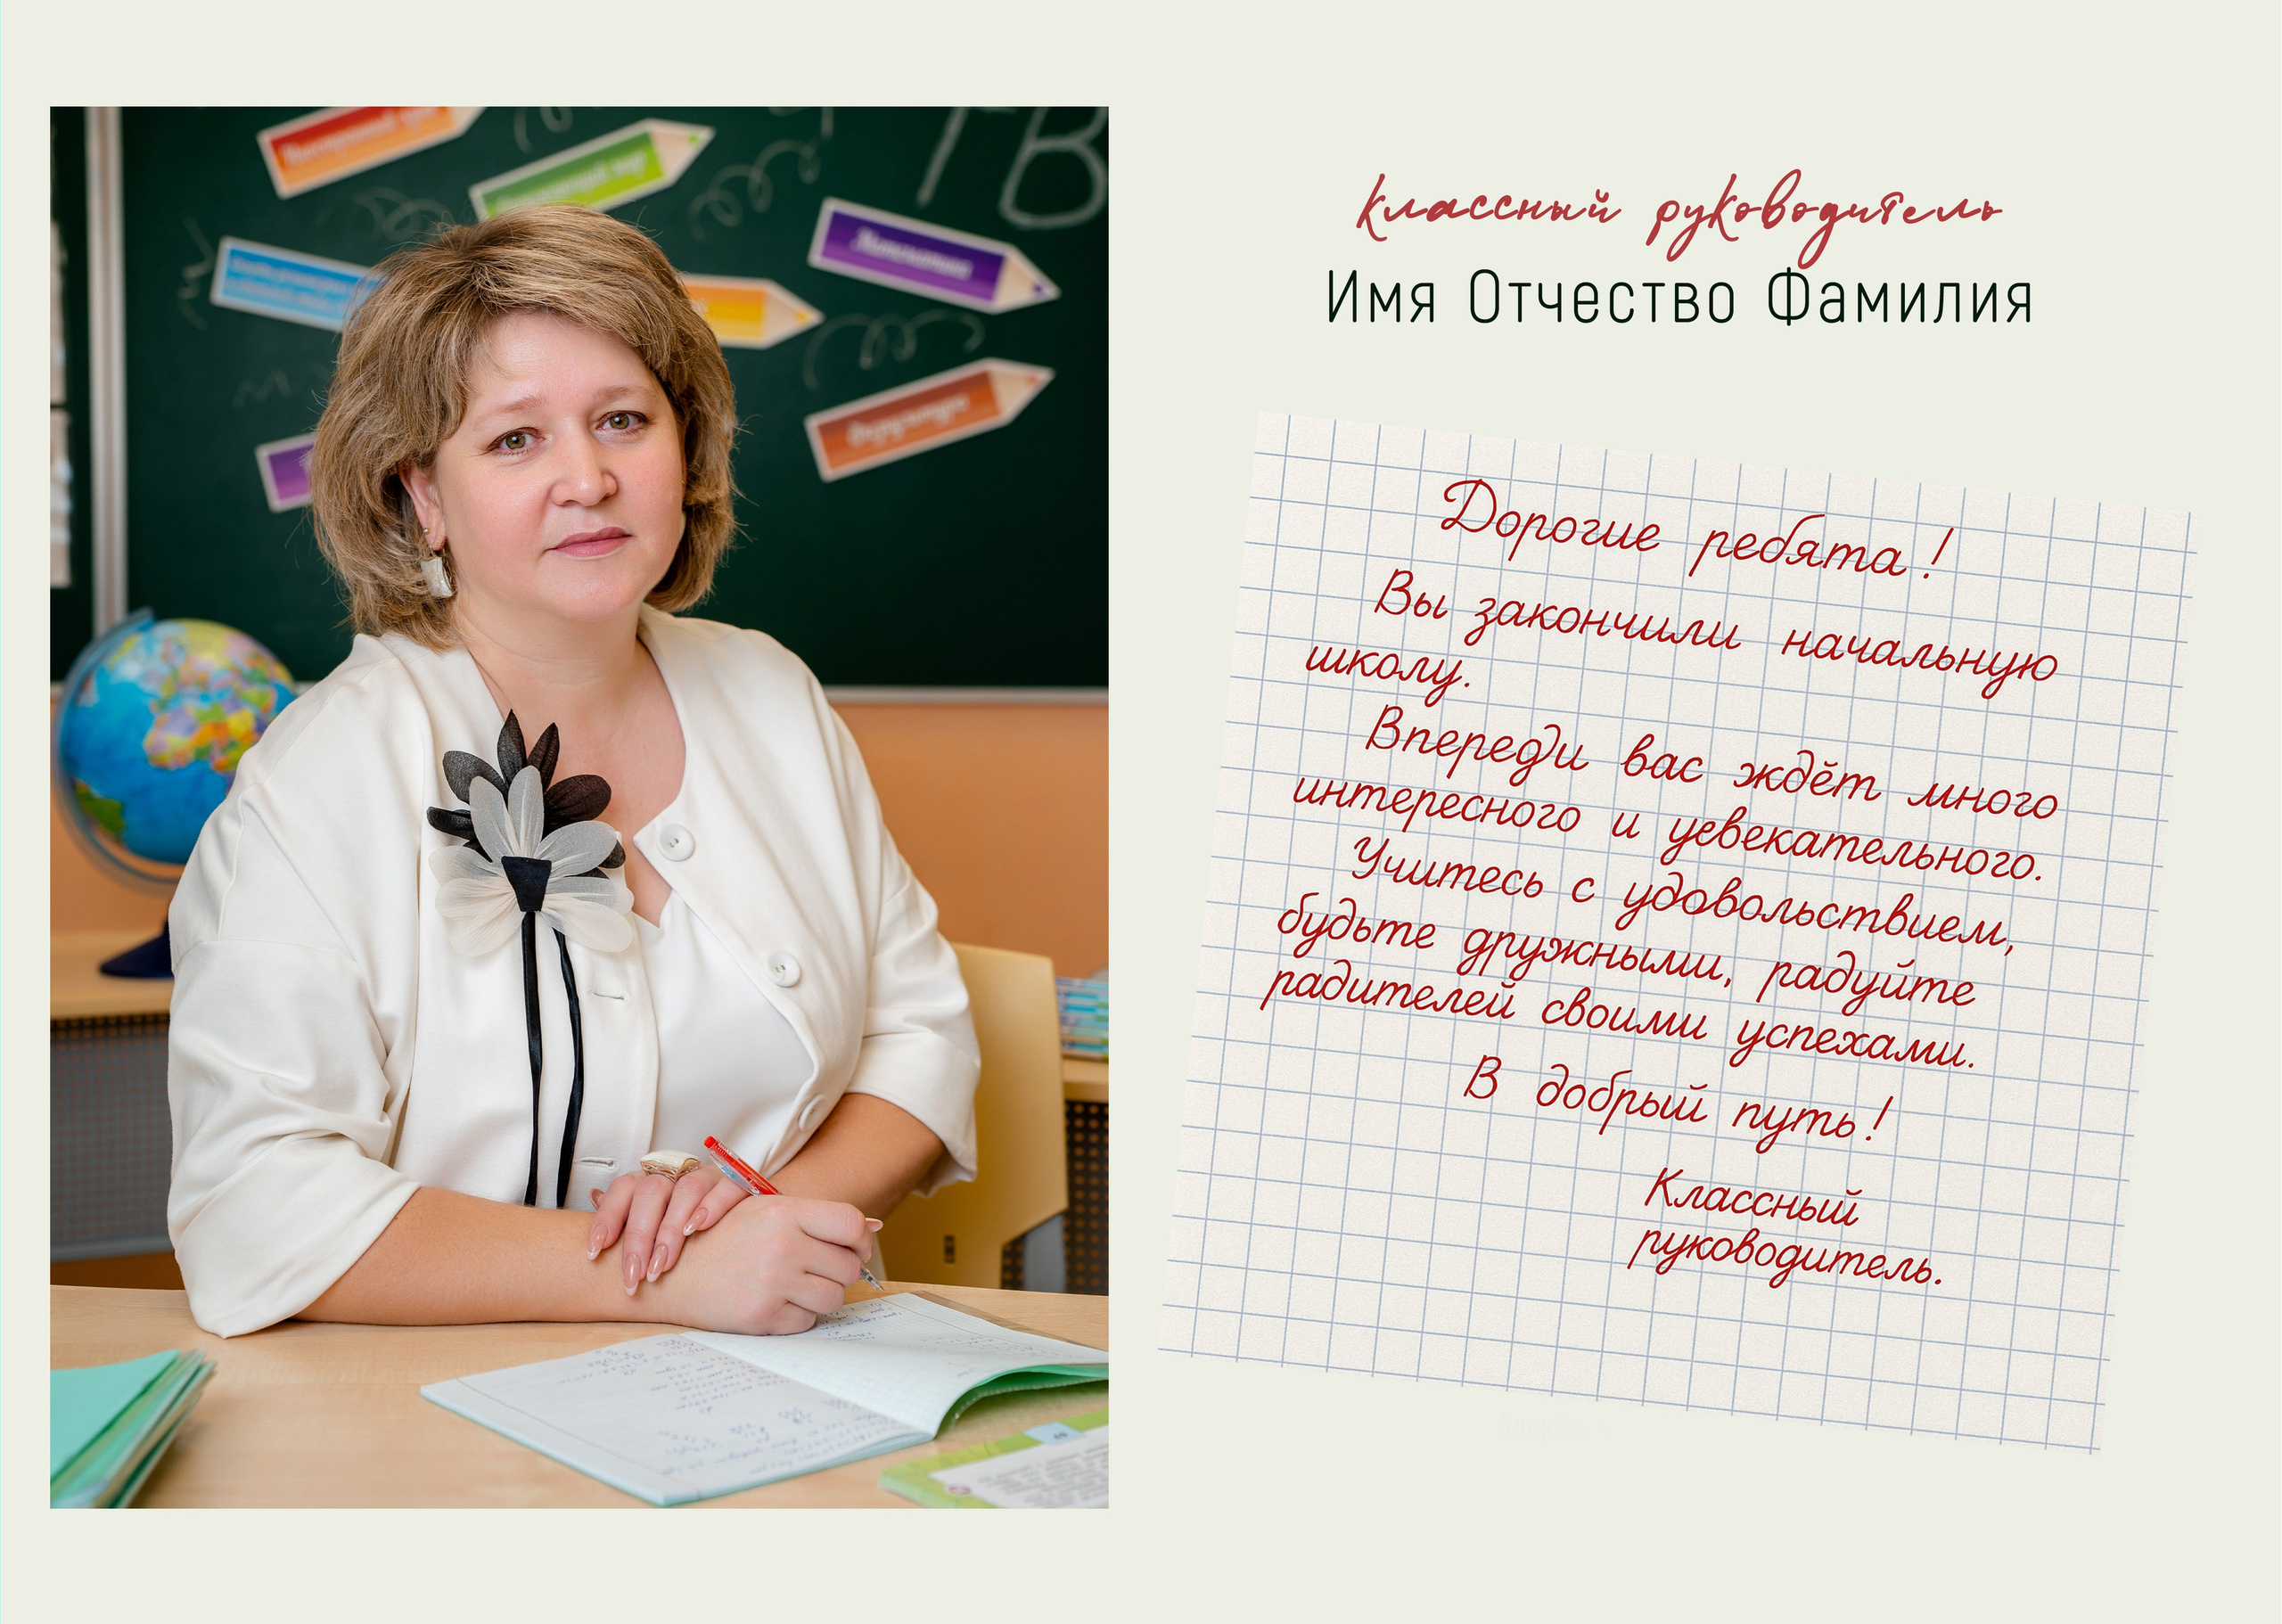 классный руководитель
Имя Отчество Фамилия
Дорогие ребята!
Вы закончили начальную
школу.
Впереди вас ждёт много
интересного и уевекательного.
Учитесь с удовольствием,
будьте дружными, радуйте
радителей своими успехами.
В добрый путь!
Классный
руководитель.